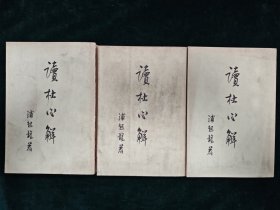 讀杜心解
浦起龍著
讀杜心解
浦起龍著
讀杜心解
浦起龍著